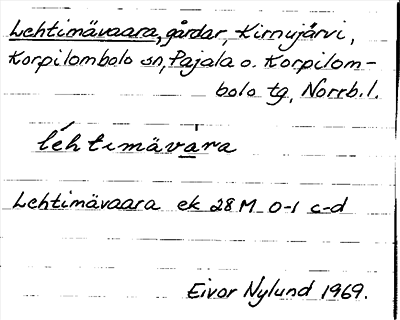 Lehtimävaara, gårdar, Kirnujärvi,
Korpilombolo sn, Pajala o. Korpilom-
bolo tg, Norrb. l.
léhtimävàra
Lehtimävaara ek 28 M 0-1 c-d
Eivor Nylund 1969.